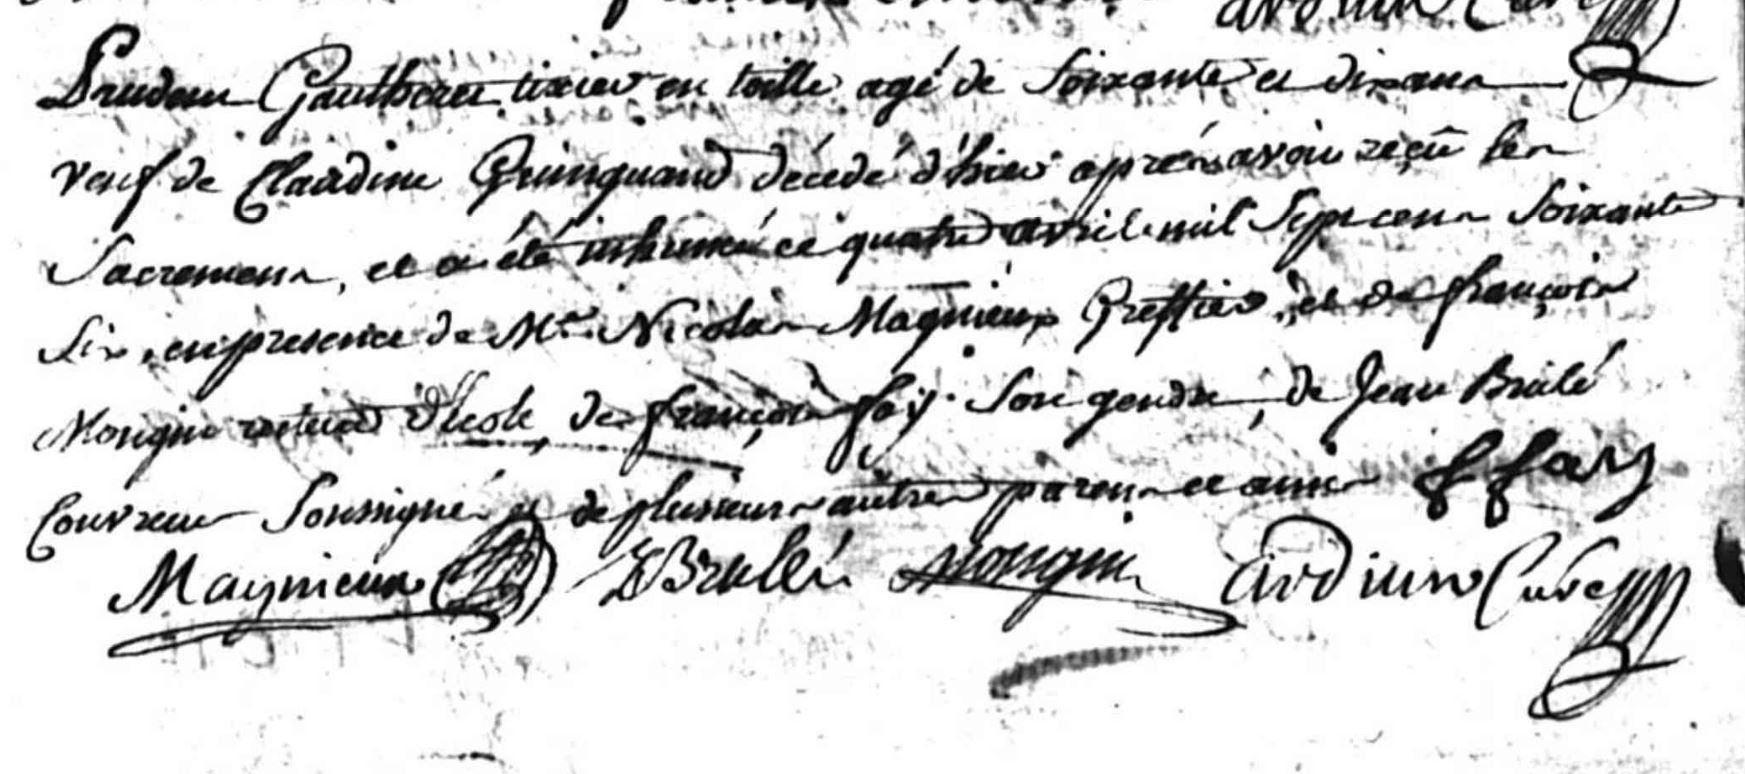 ardiun Curé
Prudent Gautheret tixier en toille agé de soixante et dix ans
veuf de Claudine Quinquand décédé d'hier aprés avoir reçû les
Sacremens, et a été inhumé ce quatre avril mil Sept cens Soixante
Six, en presence de Mr. Nicolas Magnieux Greffier, et de françois
Mongin recteur d'Ecole, de françois fay son gendre, de Jean Brulé
Couvreur Soussignés et de plusieurs autres parens et amis ffay
Magnieux JBrullé Mongin ardiun Curé